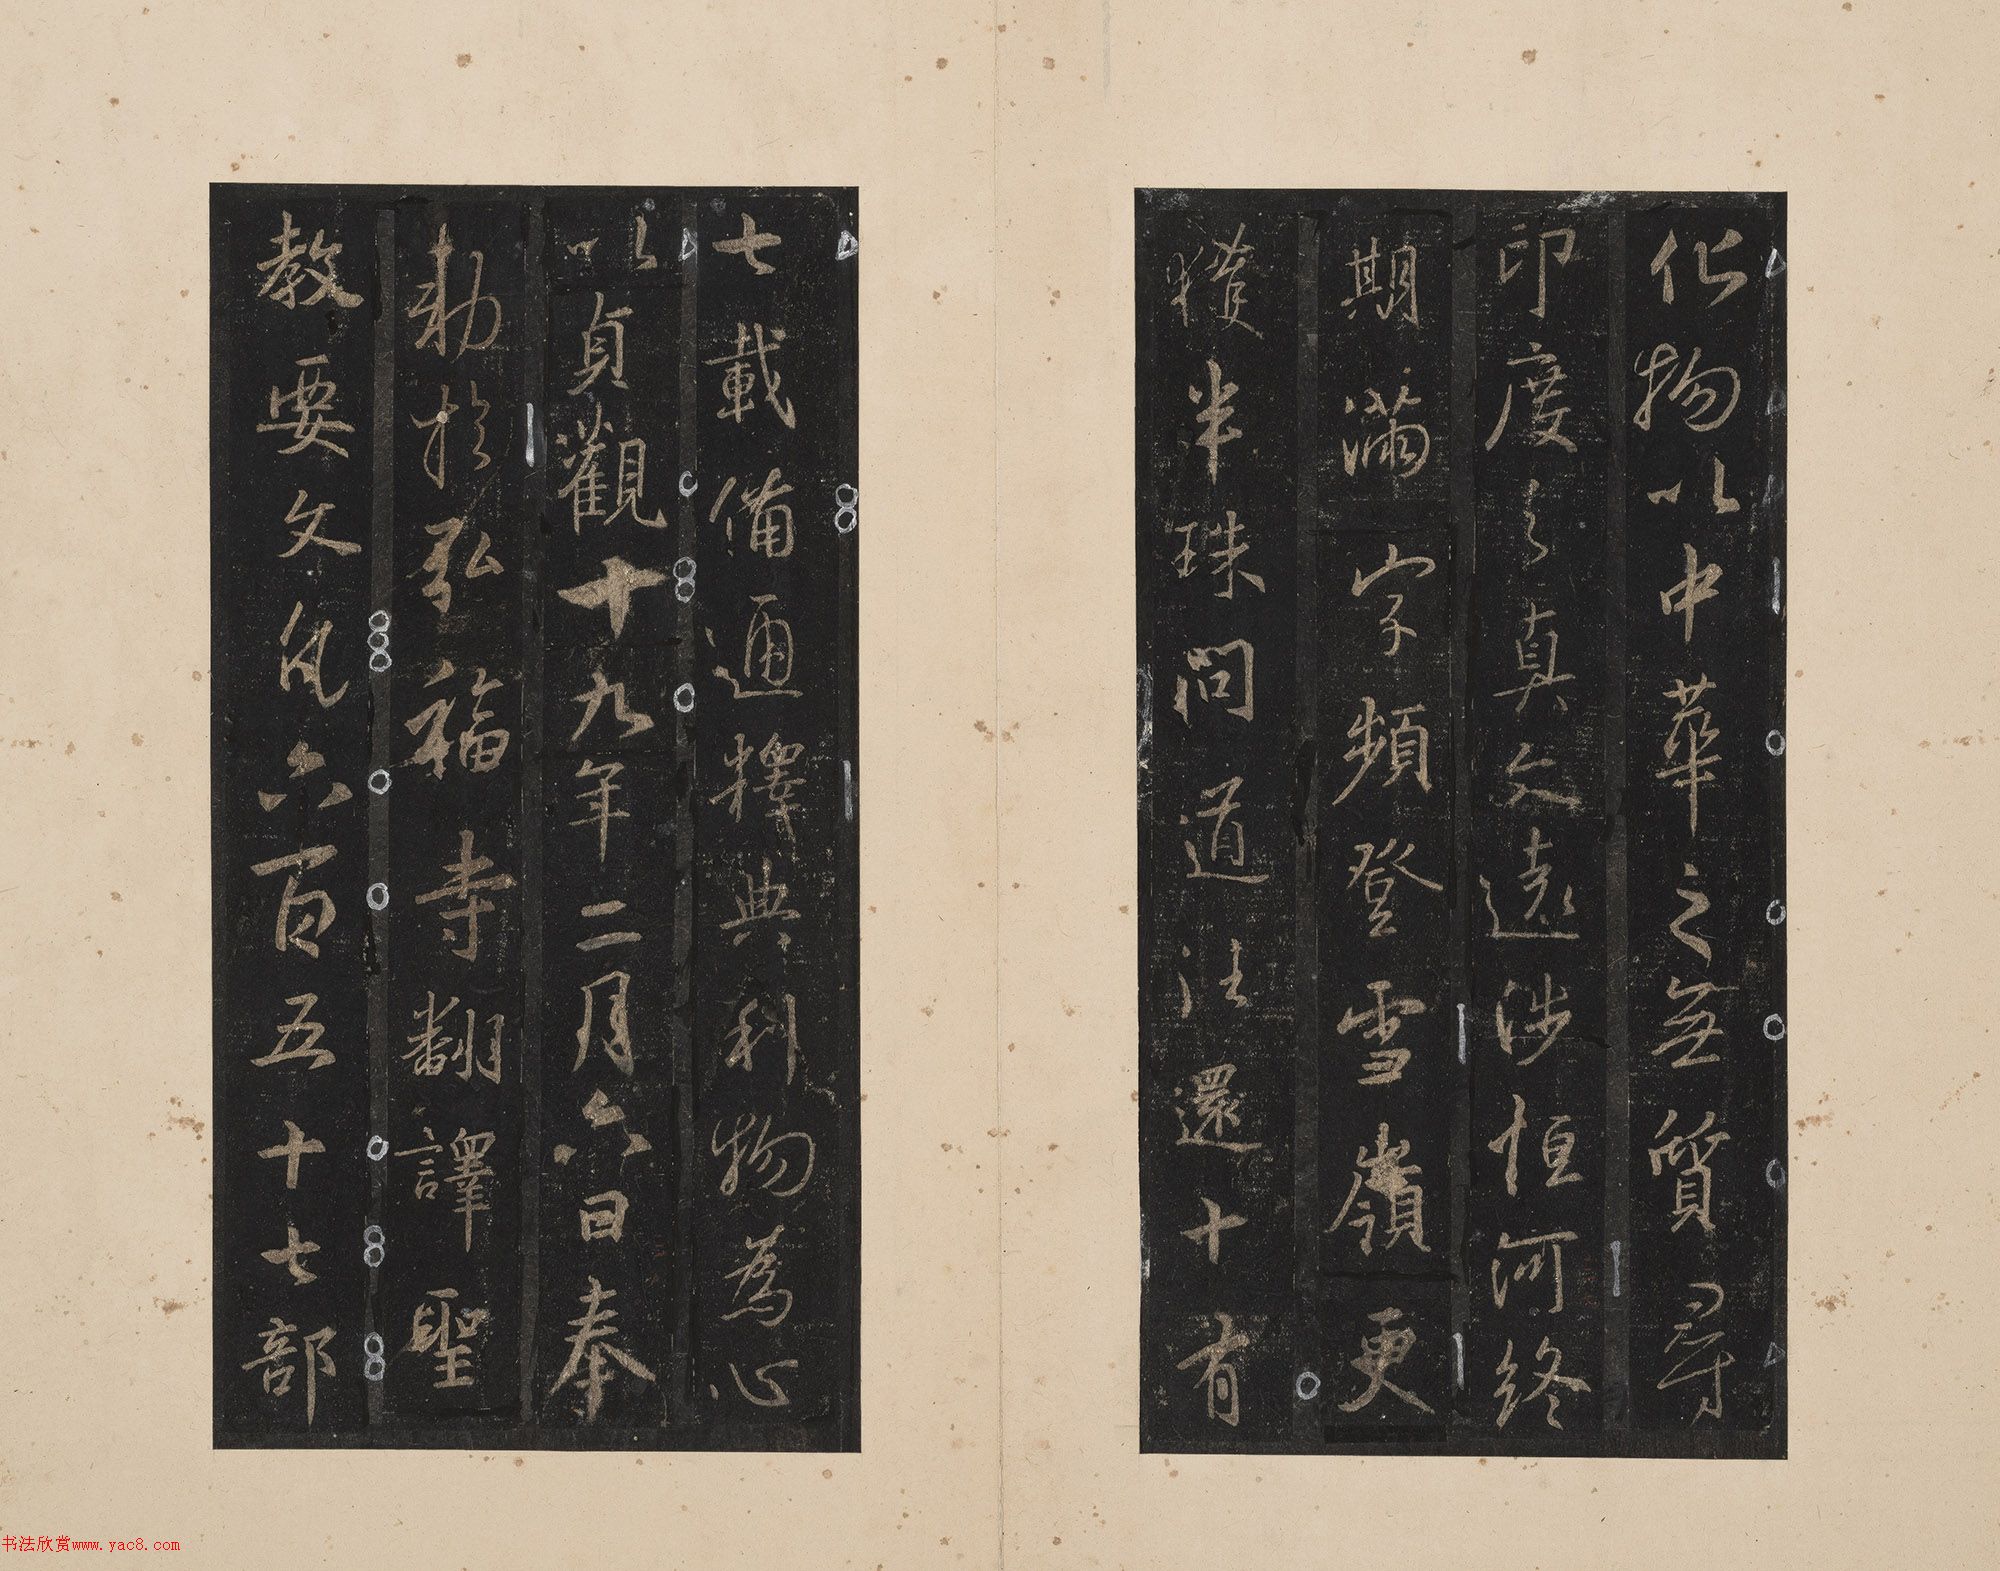 化物以中華之無質尋
印度之真文遠涉恒河終
期滿字頻登雪嶺更
獲半珠問道法還十有
七載備通釋典利物為心
以貞觀十九年二月六日奉
勅於弘福寺翻譯聖
教要文凡六百五十七部
书法欣赏www.yac8.com